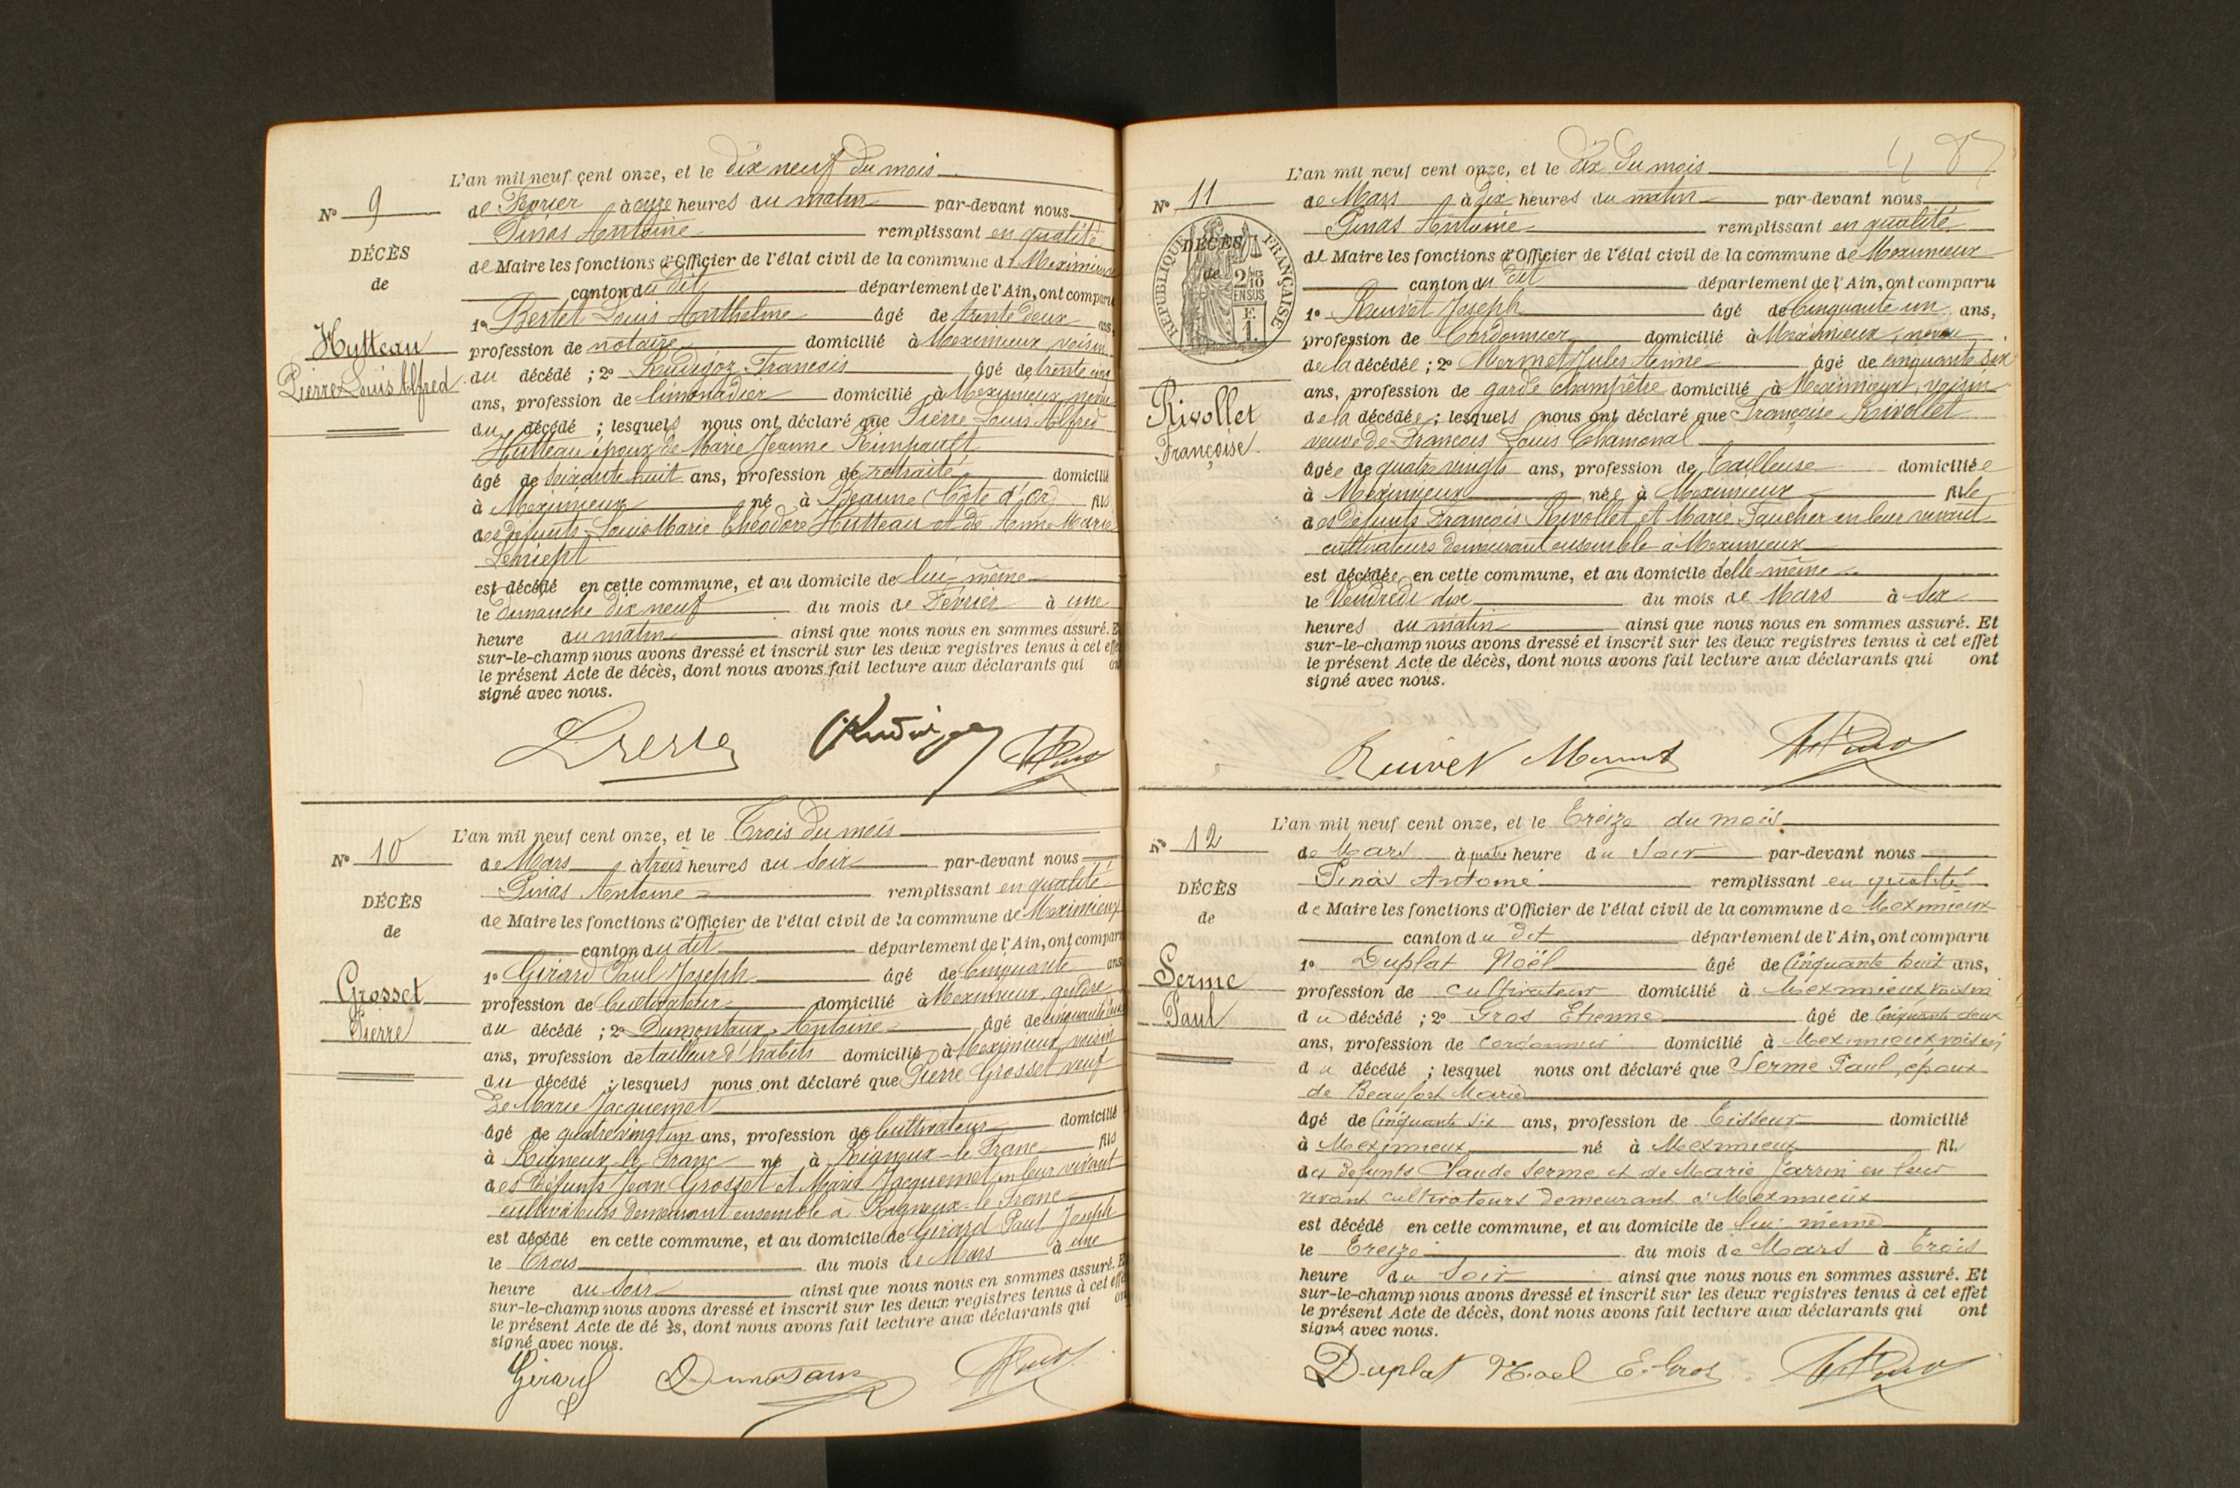 L'an mil neuf cent onze, et le dix neuf du mois
N° 9
de Février à onze heures du matin par-devant nous
Pinas Antoine remplissant en qualité
DÉCÈS
de Maire les fonctions d'Officier de l'état civil de la commune de Meximieux
de
canton du dit département de l'Ain, ont comparu
1° Bertet Louis Anthelme âgé de trente deux ans
Hutteau
profession de notaire domicilié à Meximieux voisin
Pierre Louis Alfred
du décédé ; 2° Rudigoz François âgé de trente cinq
ans, profession de limonadier domicilié à Meximieux
du décédé ; lesquels nous ont déclaré que Pierre Louis Alfred
Hutteau époux de Marie Jeanne
âgé de soixante huit ans, profession de retraité domicilié
à Meximieux né à Beaune Côte d'Or fils
des défunts Louis Marie Théodore Hutteau et de Anne Marie
est décédé en cette commune, et au domicile de lui-même
le dimanche dix neuf du mois de Février à une
heure du matin ainsi que nous nous en sommes assuré. Et
sur-le-champ nous avons dressé et inscrit sur les deux registres tenus à cet effet
le présent Acte de décès, dont nous avons fait lecture aux déclarants qui ont
signé avec nous.
L'an mil neuf cent onze, et le Trois du mois
N° 10
de Mars à trois heures du soir par-devant nous
Pinas Antoine remplissant en qualité
DÉCÈS
de Maire les fonctions d'Officier de l'état civil de la commune de Meximieux
de
canton du dit département de l'Ain, ont comparu
1° Girard Paul Joseph âgé de Cinquante ans
Grosset
profession de Cultivateur domicilié à Meximieux, gendre
Pierre
du décédé ; 2° Dumontaux Antoine âgé de cinquante
ans, profession de tailleur d'habits domicilié à Meximieux, voisin
du décédé ; lesquels nous ont déclaré que Pierre Grosset veuf
De Marie Jacquemet
âgé de quatre vingt un ans, profession de Cultivateur domicilié
à Rigneux le Franc né à Rigneux-le Franc fils
des Défunts Jean Grosset et Marie Jacquemet en leur vivant
cultivateurs demeurant ensemble à Rigneux-le Franc
est décédé en cette commune, et au domicile de Girard Paul Joseph
le Trois du mois de Mars à une
heure du soir ainsi que nous nous en sommes assuré. Et
sur-le-champ nous avons dressé et inscrit sur les deux registres tenus à cet effet
le présent Acte de décès, dont nous avons fait lecture aux déclarants qui ont
signé avec nous.
Girard
L'an mil neuf cent onze, et le dix du mois
N° 11
de Mars à dix heures du matin par-devant nous
Pinas Antoine remplissant en qualité
RÉPUBLIQUE FRANÇAISE
2/10 EN SUS
F. 1.
DÉCÈS
de Maire les fonctions d'Officier de l'état civil de la commune de Meximieux
de
canton du dit département de l'Ain, ont comparu
1° Ruivet Joseph âgé de Cinquante un ans,
profession de Cordonnier domicilié à Meximieux, neveu
de la décédée ; 2° Mermet Jules Anne âgé de cinquante six
Rivollet
ans, profession de garde Champêtre domicilié à Meximieux, voisin
Françoise
de la décédée ; lesquels nous ont déclaré que Françoise Rivollet
veuve de François Louis Chamonal
âgée de quatre vingts ans, profession de Tailleuse domiciliée
à Meximieux née à Meximieux fille
des Défunts François Rivollet et Marie Faucher en leur vivant
cultivateurs demeurant ensemble à Meximieux
est décédée en cette commune, et au domicile d'elle-même
le Vendredi dix du mois de Mars à six
heures du matin ainsi que nous nous en sommes assuré. Et
sur-le-champ nous avons dressé et inscrit sur les deux registres tenus à cet effet
le présent Acte de décès, dont nous avons fait lecture aux déclarants qui ont
signé avec nous.
Ruivet Mermet
L'an mil neuf cent onze, et le Treize du mois
N° 12
de Mars à quatre heure du Soir par-devant nous
Pinas Antoine remplissant en qualité
DÉCÈS
de Maire les fonctions d'Officier de l'état civil de la commune de Meximieux
de
canton du dit département de l'Ain, ont comparu
1° Duplat Noël âgé de Cinquante huit ans,
Serme
profession de cultivateur domicilié à Meximieux voisin
Paul
du décédé ; 2° Gros Etienne âgé de Cinquante deux
ans, profession de cordonnier domicilié à Meximieux voisin
du décédé ; lesquel nous ont déclaré que Serme Paul, époux
de Beaufort Marie
âgé de Cinquante six ans, profession de Tisseur domicilié
à Meximieux né à Meximieux fils
des défunts Claude Serme et de Marie Jarrin en leur
vivant cultivateurs demeurant à Meximieux
est décédé en cette commune, et au domicile de lui-même
le Treize du mois de Mars à Trois
heure du Soir ainsi que nous nous en sommes assuré. Et
sur-le-champ nous avons dressé et inscrit sur les deux registres tenus à cet effet
le présent Acte de décès, dont nous avons fait lecture aux déclarants qui ont
signé avec nous.
Duplat Noel E. Gros